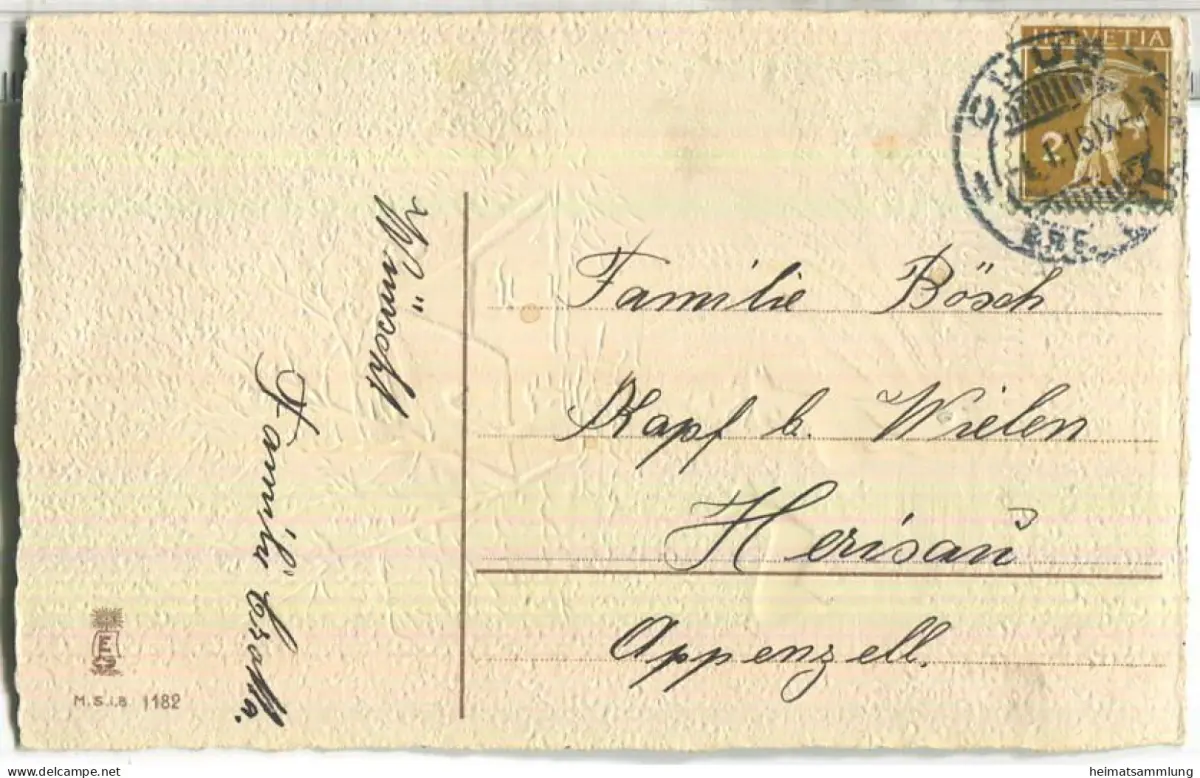 HELVETIA
CHUR
Familie Bösch
Kapf b. Wielen
Herisau
Appenzell.
Familie
M.S.i.B 1182
heimatsammlung